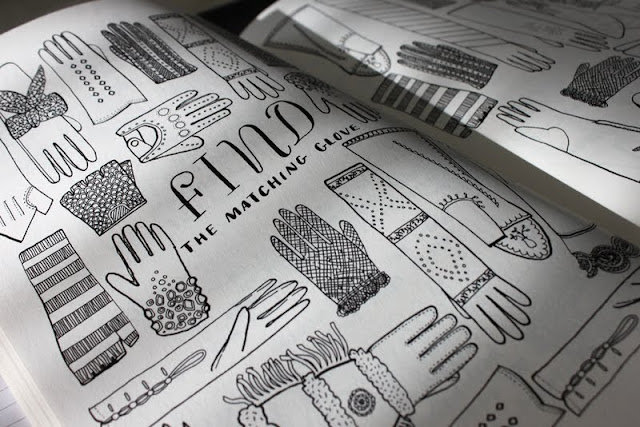 FIND
THE MATCHING GLOVE